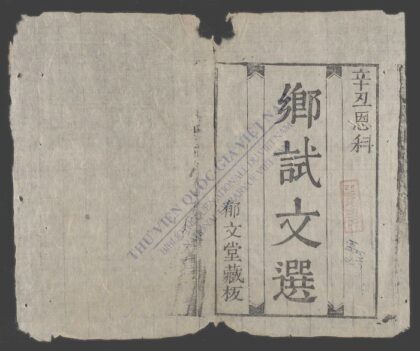 辛丑恩科
鄉試文選
郁文堂藏板
THƯ VIỆN QUỐC GIA VIỆT NAM